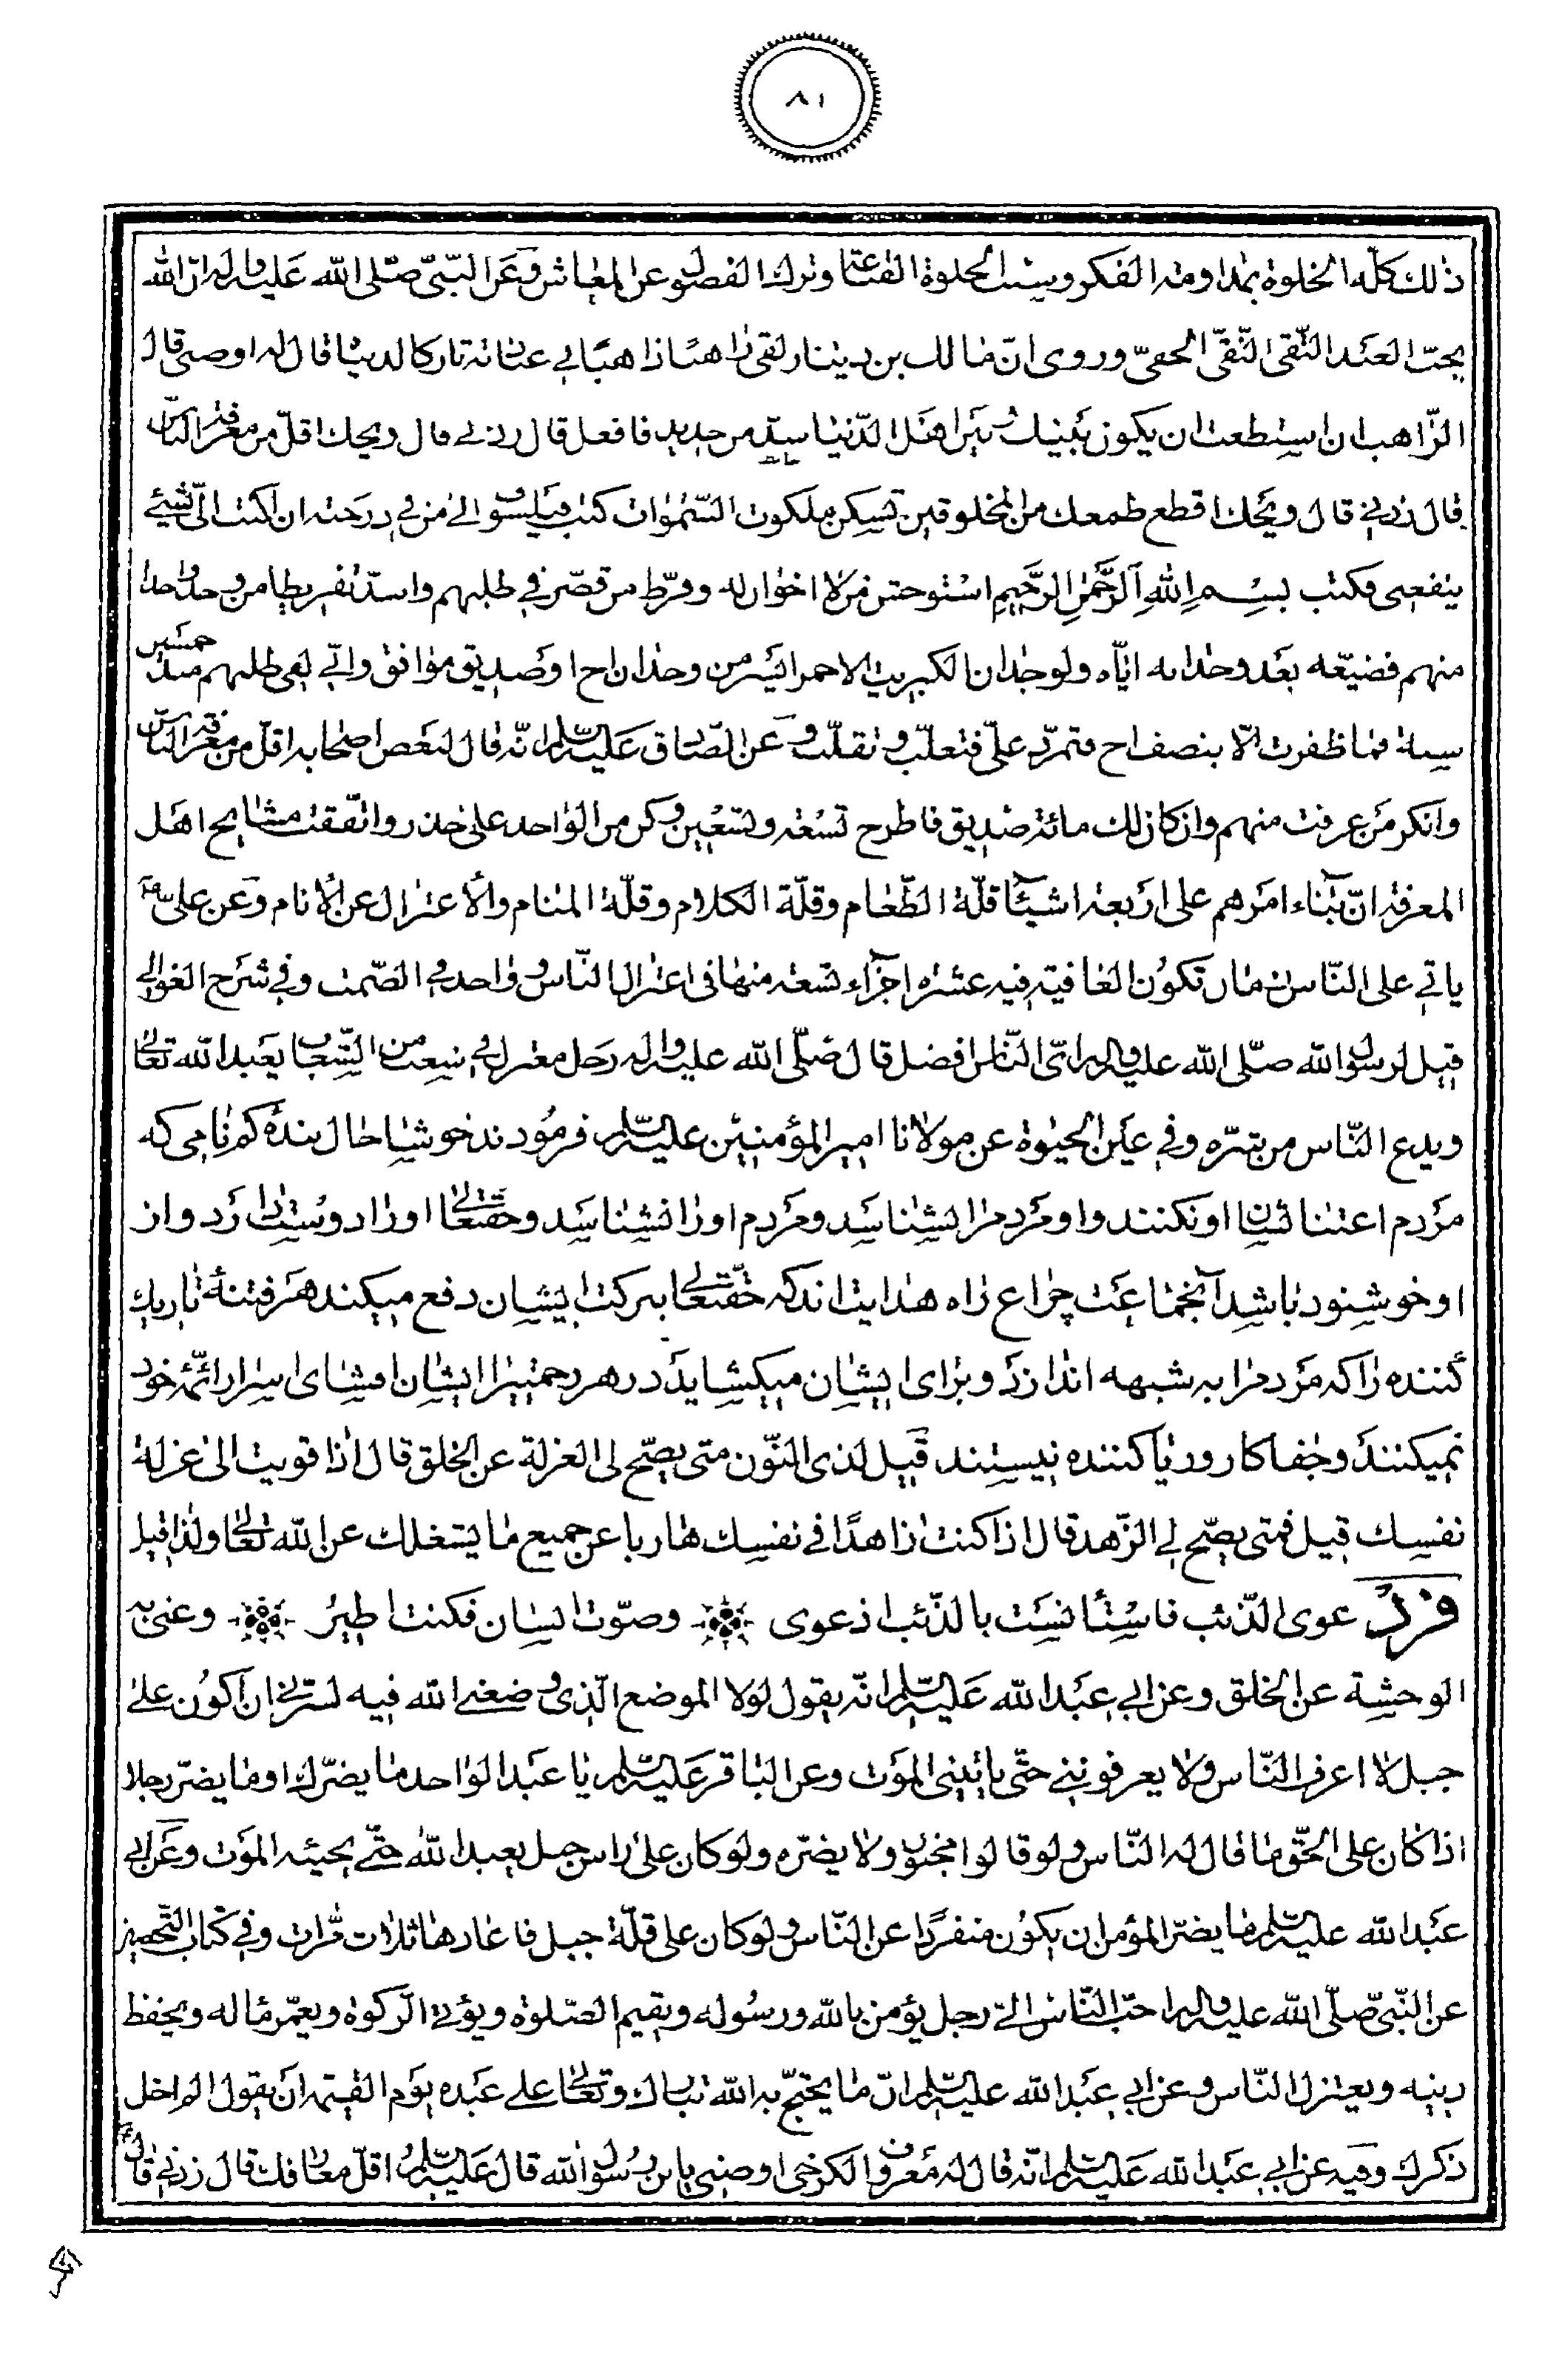 ٨١
ذلك كلّه الخلوة بمداومة الفكر وسبب الخلوة القناعة وترك الفضول عن المعاش وعن النبىّ صلّى الله عليه واله ان الله
يحبّ العبد التّقى النّقىّ الحفىّ وروى انّ مالك بن دينار لقى راهبًا ذاهبًا فى عنانة تاركا لدنيا قال له اوصنى قال
الرّاهب ان استطعت ان يكون بينك وبين اهل الدّنيا سدّ من حديد فافعل قال زدنى قال ويحك اقلّ من معرفة النّاس
قال زدنى قال ويحك اقطع طمعك من المخلوقين تسكن ملكوت السّموات كتب فيلسوف الى من فى درجته ان اكتب الىّ بشيئ
ينفعنى فكتب بسم الله الرّحمن الرّحيم استوحش من لا اخوان له وفرّط من قصّر فى طلبهم واشدّ تفريطا من وجد واحدا
منهم فضيّعه بعد وجدانه ايّاه ولوجدان الكبريت الاحمر ايسر من وجدان اخ او صديق موافق وانّى لفى طلبهم منذ خمسين
سنة فما ظفرت الّا بنصف اخ فتمرّد علىّ فتغلّب وتقلّب وعن الصّادق عليه السّلام انّه قال لبعض اصحابه اقلّ من معرفة النّاس
وانكر من عرفت منهم وان كان لك مائة صديق فاطرح تسعة وتسعين وكن من الواحد على حذر واتّفقت مشايخ اهل
المعرفة انّ بناء امرهم على اربعة اشياء قلّة الطّعام وقلّة الكلام وقلّة المنام والأعتزال عن الأنام وعن علىّ ع
ياتى على النّاس زمان تكون العافية فيه عشرة اجزاء تسعة منها فى اعتزال النّاس وواحد فى الصّمت وفى شرح الغوالى
قيل لرسول الله صلّى الله عليه واله اىّ النّاس افضل قال صلّى الله عليه واله رجل معتزل فى شعب من الشّعاب يعبد الله تعالى
ويدع النّاس من شرّه وفى عين الحيوة عن مولانا امير المؤمنين عليه السّلام فرمودند خوشا حال بندۀ كم نامى كه
مردم اعتنا بشان او نكنند واو مردم را بشناسد ومردم او را نشناسد وحقتعالى او را دوست دارد واز
او خوشنود باشد آنجماعت چراغ راه هدايت اندكه حقّتعالى ببركت ايشان دفع ميكند هر فتنۀ تاريك
كننده را كه مردم را به شبهه اندازد وبراى ايشان ميكشايد در هر رحمتيرا ايشان افشاى اسرار ائمّۀ خود
نميكنند وجفاكار وريا كننده نيستند قيل لذى النّون متى يصحّ لى العزلة عن الخلق قال اذا قويت الى عزلة
نفسك قيل فمتى يصحّ لى الزّهد قال اذا كنت زاهدًا فى نفسك هاربا عن جميع ما يشغلك عن الله تعالى ولذا قيل
فرد عوى الذّئب فاستأنست بالذّئب اذ عوى وصوّت انسان فكنت اطير وعنى به
الوحشة عن الخلق وعن ابى عبد الله عليه السّلام انّه يقول لولا الموضع الّذى وضعنى الله فيه لسرّنى ان اكون على
جبل لا اعرف النّاس ولا يعرفوننى حتّى ياتينى الموت وعن الباقر عليه السّلام يا عبد الواحد ما يضرّك او ما يضرّ رجلا
اذا كان على الحقّ ما قال له النّاس ولو قالوا مجنون ولا يضرّه ولو كان على راس جبل يعبد الله حتّى يجيئه الموت وعن ابى
عبد الله عليه السّلام ما يضرّ المؤمن ان يكون منفردًا عن النّاس ولو كان على قلّة جبل فاعادها ثلاث مرّات وفى كتاب التّحصين
عن النّبىّ صلّى الله عليه واله احبّ النّاس الىّ رجل يؤمن بالله ورسوله ويقيم الصّلوة ويؤتى الزّكوة ويعمّر ماله ويحفظ
دينه ويعتزل النّاس وعن ابى عبد الله عليه السّلام انّ ما يحتجّ به الله تبارك وتعالى على عبده يوم القيمة ان يقول الم اخمل
ذكرك وفيه عن ابى عبد الله عليه السّلام انّه قال له معروف الكرخى اوصنى يابن رسول الله قال عليه السّلام اقلّ معارفك قال زدنى قال